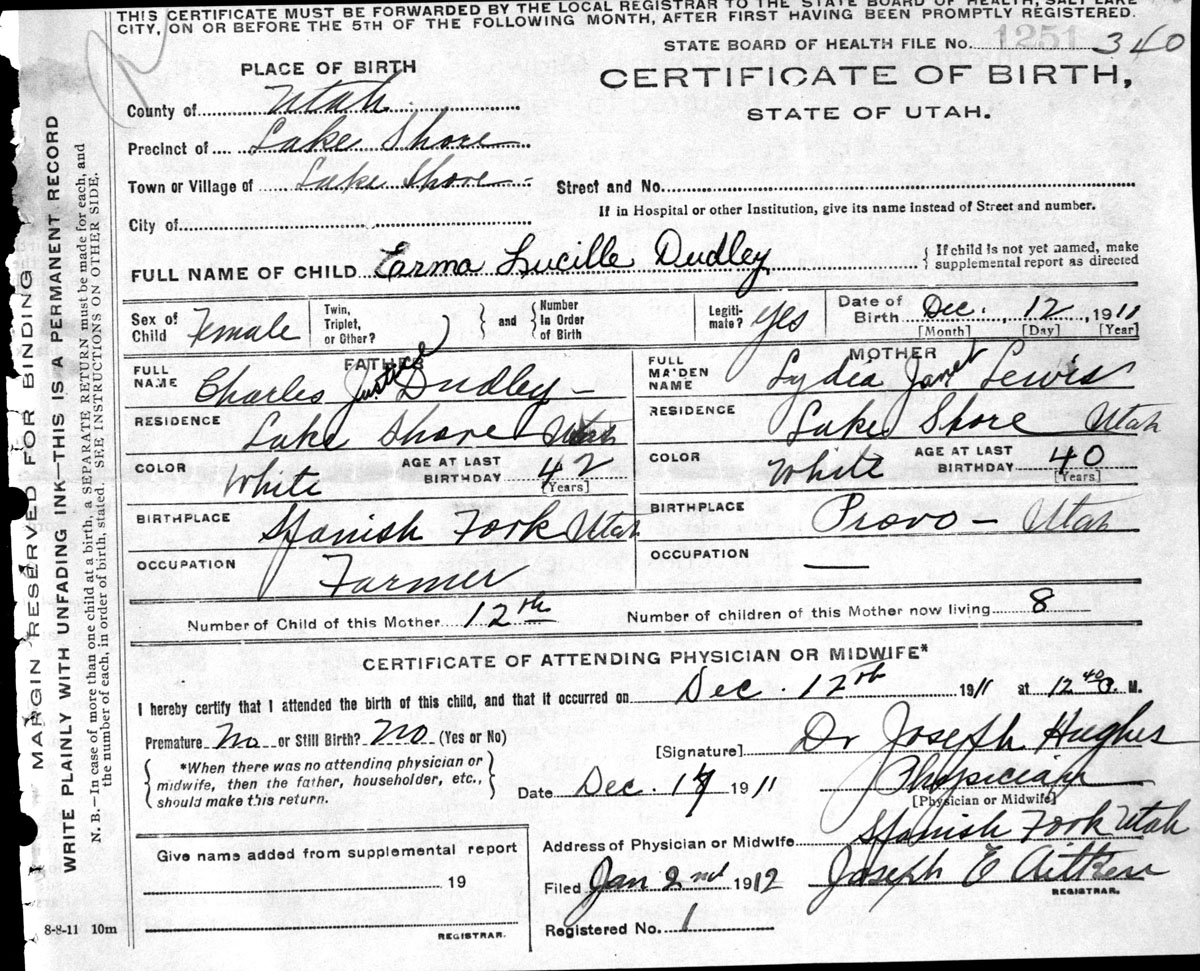 THIS CERTIFICATE MUST BE FORWARDED BY THE LOCAL REGISTRAR TO THE STATE BOARD OF HEALTH, SALT LAKE
CITY, ON OR BEFORE THE 5TH OF THE FOLLOWING MONTH, AFTER FIRST HAVING BEEN PROMPTLY REGISTERED.
STATE BOARD OF HEALTH FILE No. 1251 340
PLACE OF BIRTH
CERTIFICATE OF BIRTH,
STATE OF UTAH.
County of Utah
Precinct of Lake Shore
Town or Village of Lake Shore Street and No.
If in Hospital or other Institution, give its name instead of Street and number.
City of
FULL NAME OF CHILD Earma Lucille Dudley { If child is not yet named, make
supplemental report as directed
Sex of Child Female Twin, Triplet, or Other? } and { Number In Order of Birth Legiti-mate? Yes Date of Birth Dec. 12, 1911
[Month] [Day] [Year]
FATHER MOTHER
FULL NAME Charles Justice Dudley FULL MAIDEN NAME Lydia Janet Lewis
RESIDENCE Lake Shore Utah RESIDENCE Lake Shore Utah
COLOR White AGE AT LAST BIRTHDAY 42 [Years] COLOR White AGE AT LAST BIRTHDAY 40 [Years]
BIRTHPLACE Spanish Fork Utah BIRTHPLACE Provo - Utah
OCCUPATION Farmer OCCUPATION —
Number of Child of this Mother 12th Number of children of this Mother now living 8
CERTIFICATE OF ATTENDING PHYSICIAN OR MIDWIFE*
I hereby certify that I attended the birth of this child, and that it occurred on Dec. 12th 1911 at 12 40 M.
Premature No or Still Birth? No (Yes or No)
[Signature] Dr Joseph Hughes
{ *When there was no attending physician or
midwife, then the father, householder, etc.,
should make this return. }
Date Dec. 1911 Physician
[Physician or Midwife]
Address of Physician or Midwife Spanish Fork Utah
Give name added from supplemental report
19
Filed Jan 2nd 1912 Joseph E Aitken
REGISTRAR.
Registered No. 1
REGISTRAR.
8-8-11 10m
MARGIN RESERVED FOR BINDING
WRITE PLAINLY WITH UNFADING INK—THIS IS A PERMANENT RECORD
N. B.—In case of more than one child at a birth, a SEPARATE RETURN must be made for each, and
the number of each, in order of birth, stated. SEE INSTRUCTIONS ON OTHER SIDE.